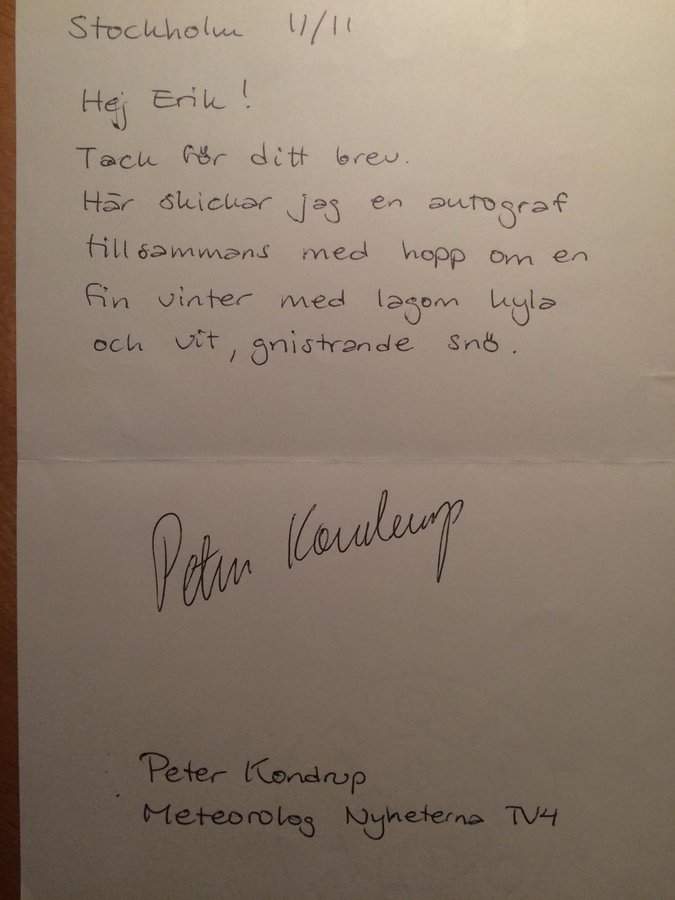 Stockholm 11/11
Hej Erik!
Tack för ditt brev.
Här skickar jag en autograf
tillsammans med hopp om en
fin vinter med lagom kyla
och vit, gnistrande snö.
Peter Kondrup
Peter Kondrup
Meteorolog Nyheterna TV4